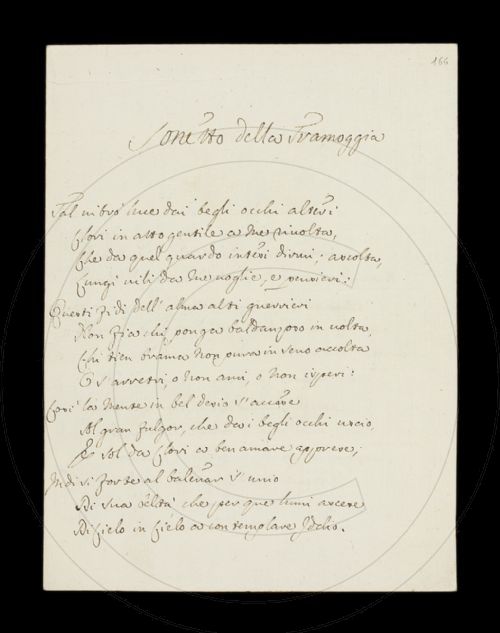 166
Sonetto della Tramoggia
Tal vibrò luce dai begli occhi alteri
Clori in atto gentile a me rivolta,
Che da quel guardo intesi dirmi: ascolta,
Lungi vili da me voglie, e pensieri:
Questi fidi dell' alma alti guerrieri
Non fia chi ponga baldanzoso in volta,
Chi tien brama non pura in seno accolta
O s' arretri, o non ami, o non isperi:
Così la mente in bel desio s' accese
Al gran fulgor, che dai begli occhi uscio,
E sol da Clori a ben amare apprese;
Indi si forte al balenar s' unio
Di sua beltà che per que' lumi ascese
Di Cielo in Cielo a contemplare Iddio.